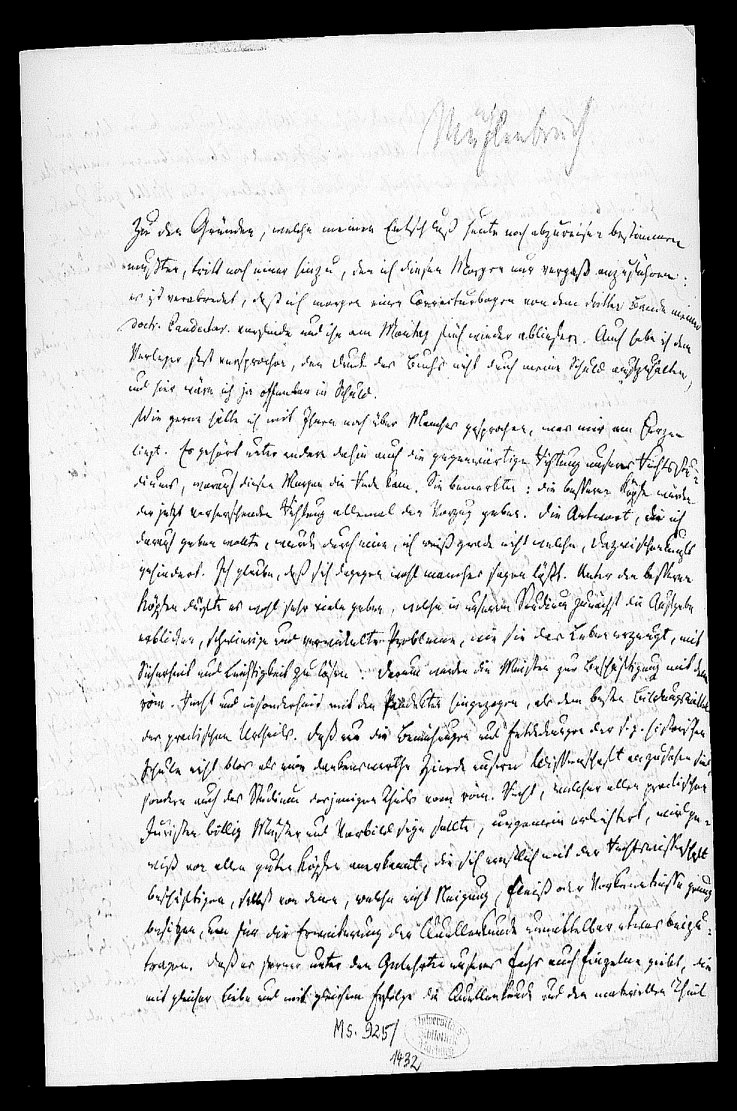 Mühlenbruch
Zu den Gründen, welche meinen Entschluß heute noch abzureisen bestimmen
mußten, tritt noch einer hinzu, den ich diesen Morgen nur vergaß anzuführen:
es ist verabredet, daß ich morgen einen Correcturbogen von dem dritten Bande meiner
doctr. Pandectar. vorfinde und ihn am Montag früh wieder abliefere. Auch habe ich dem
Verleger fest versprochen, den Druck des Buchs nicht durch meine Schuld aufzuhalten,
und hier wäre ich ja offenbar in Schuld.
Wie gerne hätte ich mit Ihnen noch über Manches gesprochen, was mir am Herzen
liegt. Es gehört unter andern dahin auch die gegenwärtige Richtung unseres Rechtsstu-
diums, worauf diesen Morgen die Rede kam. Sie bemerkten: die besseren Köpfe würden
der jetzt vorherrschenden Richtung allemal den Vorzug geben. Die Antwort, die ich
darauf geben wollte, wurde durch eine, ich weiß grade nicht welche, Dazwischenkunft
gehindert. Ich glaube, daß sich dagegen wohl manches sagen läßt. Unter den besseren
Köpfen dürfte es wohl sehr viele geben, welche in unserem Studium zunächst die Aufgabe
erblicken, schwierige und verwickelte Probleme, wie sie das Leben erzeugt, mit
Sicherheit und Leichtigkeit zu lösen. Darum werden die Meisten zur Beschäftigung mit dem
röm. Recht und insonderheit mit den Pandekten hingezogen, als dem besten Bildungsmittel
des practischen Urtheils. Daß nun die Bemühungen und Entdeckungen der s. g. historischen
Schule nicht blos als eine dankenswerthe Zierde unserer Wissenschaft anzusehen sind,
sondern auch das Studium desjenigen Theils vom röm. Recht, welcher allen practischen
Juristen billig Muster und Vorbild seyn sollte, ungemein erleichtert, wird ge-
wiß von allen guten Köpfen anerkannt, die sich ernstlich mit der Rechtswissenschaft
beschäftigen, selbst von denen, welche nicht Neigung, Fleiß oder Vorkenntnisse genug
besitzen, um für die Erweiterung der Quellenkunde unmittelbar etwas beizu-
tragen. Daß es ferner unter den Gelehrten unseres Fachs auch Einzelne giebt, die
mit gleicher Liebe und mit gleichem Erfolge die Quellenkunde und den materiellen Theil
Ms. 925/
1432
Universitäts
Bibliothek
Marburg